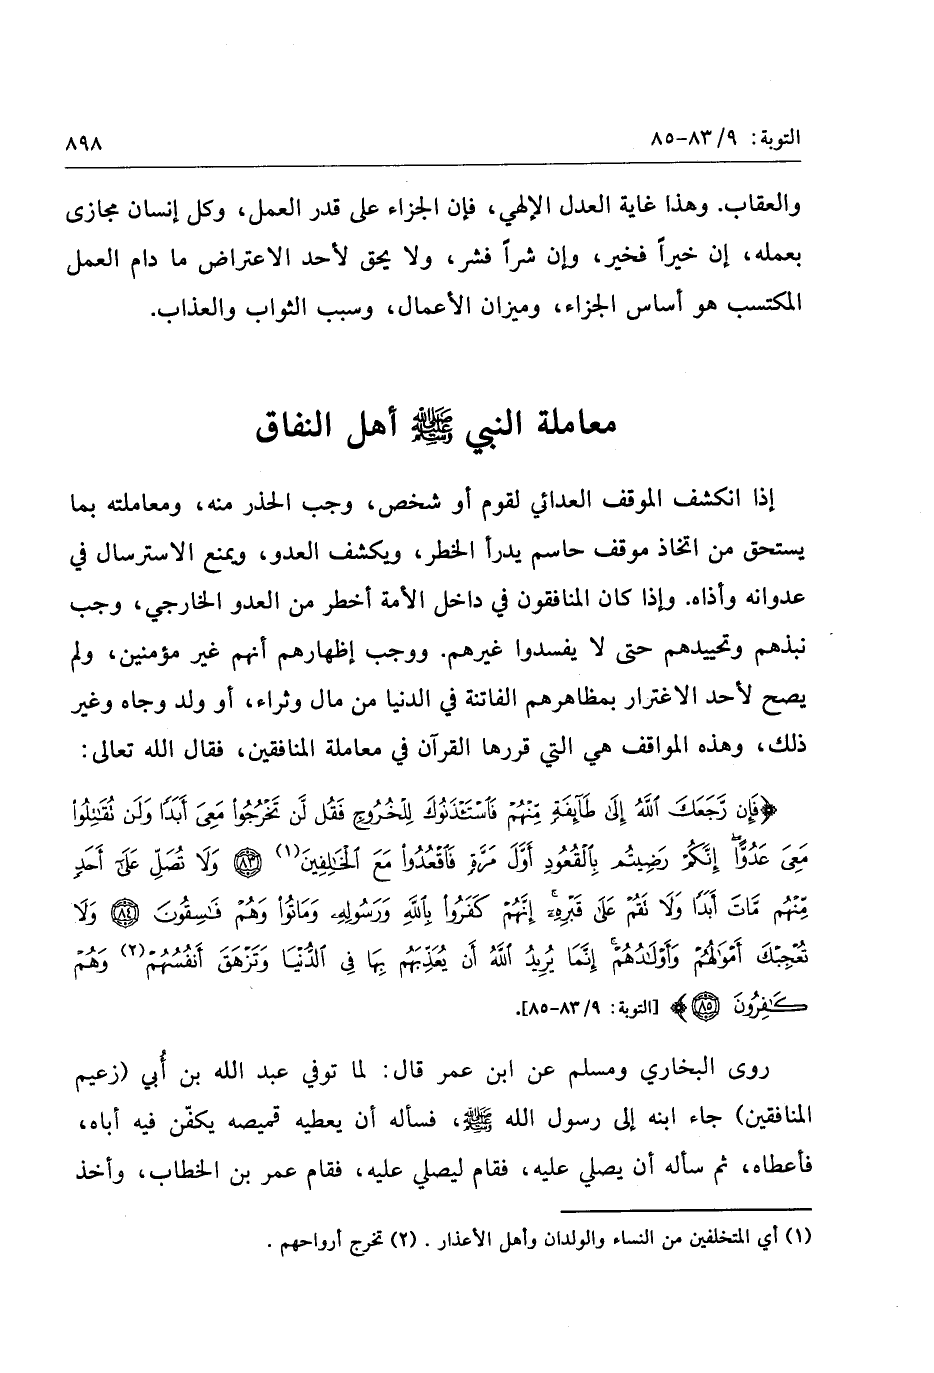 التوبة: ٩/ ٨٣-٨٥ ٨٩٨
والعقاب. وهذا غاية العدل الإلهي، فإن الجزاء على قدر العمل، وكل إنسان مجازى
بعمله، إن خيراً فخير، وإن شراً فشر، ولا يحق لأحد الاعتراض ما دام العمل
المكتسب هو أساس الجزاء، وميزان الأعمال، وسبب الثواب والعذاب.
معاملة النبي ﷺ أهل النفاق
إذا انكشف الموقف العدائي لقوم أو شخص، وجب الحذر منه، ومعاملته بما
يستحق من اتخاذ موقف حاسم يدرأ الخطر، ويكشف العدو، ويمنع الاسترسال في
عدوانه وأذاه. وإذا كان المنافقون في داخل الأمة أخطر من العدو الخارجي، وجب
نبذهم وتحييدهم حتى لا يفسدوا غيرهم. ووجب إظهارهم أنهم غير مؤمنين، ولم
يصح لأحد الاغترار بمظاهرهم الفاتنة في الدنيا من مال وثراء، أو ولد وجاه وغير
ذلك، وهذه المواقف هي التي قررها القرآن في معاملة المنافقين، فقال الله تعالى:
﴿فَإِن رَّجَعَكَ ٱللَّهُ إِلَىٰ طَآئِفَةٍ مِّنْهُمْ فَٱسْتَـْٔذَنُوكَ لِلْخُرُوجِ فَقُل لَّن تَخْرُجُوا۟ مَعِىَ أَبَدًا وَلَن تُقَٰتِلُوا۟
مَعِىَ عَدُوًّا ۖ إِنَّكُمْ رَضِيتُم بِٱلْقُعُودِ أَوَّلَ مَرَّةٍ فَٱقْعُدُوا۟ مَعَ ٱلْخَٰلِفِينَ(١) ۝٨٣ وَلَا تُصَلِّ عَلَىٰٓ أَحَدٍ
مِّنْهُم مَّاتَ أَبَدًا وَلَا تَقُمْ عَلَىٰ قَبْرِهِۦٓ ۖ إِنَّهُمْ كَفَرُوا۟ بِٱللَّهِ وَرَسُولِهِۦ وَمَاتُوا۟ وَهُمْ فَٰسِقُونَ ۝٨٤ وَلَا
تُعْجِبْكَ أَمْوَٰلُهُمْ وَأَوْلَٰدُهُمْ ۚ إِنَّمَا يُرِيدُ ٱللَّهُ أَن يُعَذِّبَهُم بِهَا فِى ٱلدُّنْيَا وَتَزْهَقَ أَنفُسُهُمْ(٢) وَهُمْ
كَٰفِرُونَ ۝٨٥﴾ [التوبة: ٩/ ٨٣-٨٥].
روى البخاري ومسلم عن ابن عمر قال: لما توفي عبد الله بن أُبي (زعيم
المنافقين) جاء ابنه إلى رسول الله ﷺ، فسأله أن يعطيه قميصه يكفّن فيه أباه،
فأعطاه، ثم سأله أن يصلي عليه، فقام ليصلي عليه، فقام عمر بن الخطاب، وأخذ
(١) أي المتخلفين من النساء والولدان وأهل الأعذار . (٢) تخرج أرواحهم .